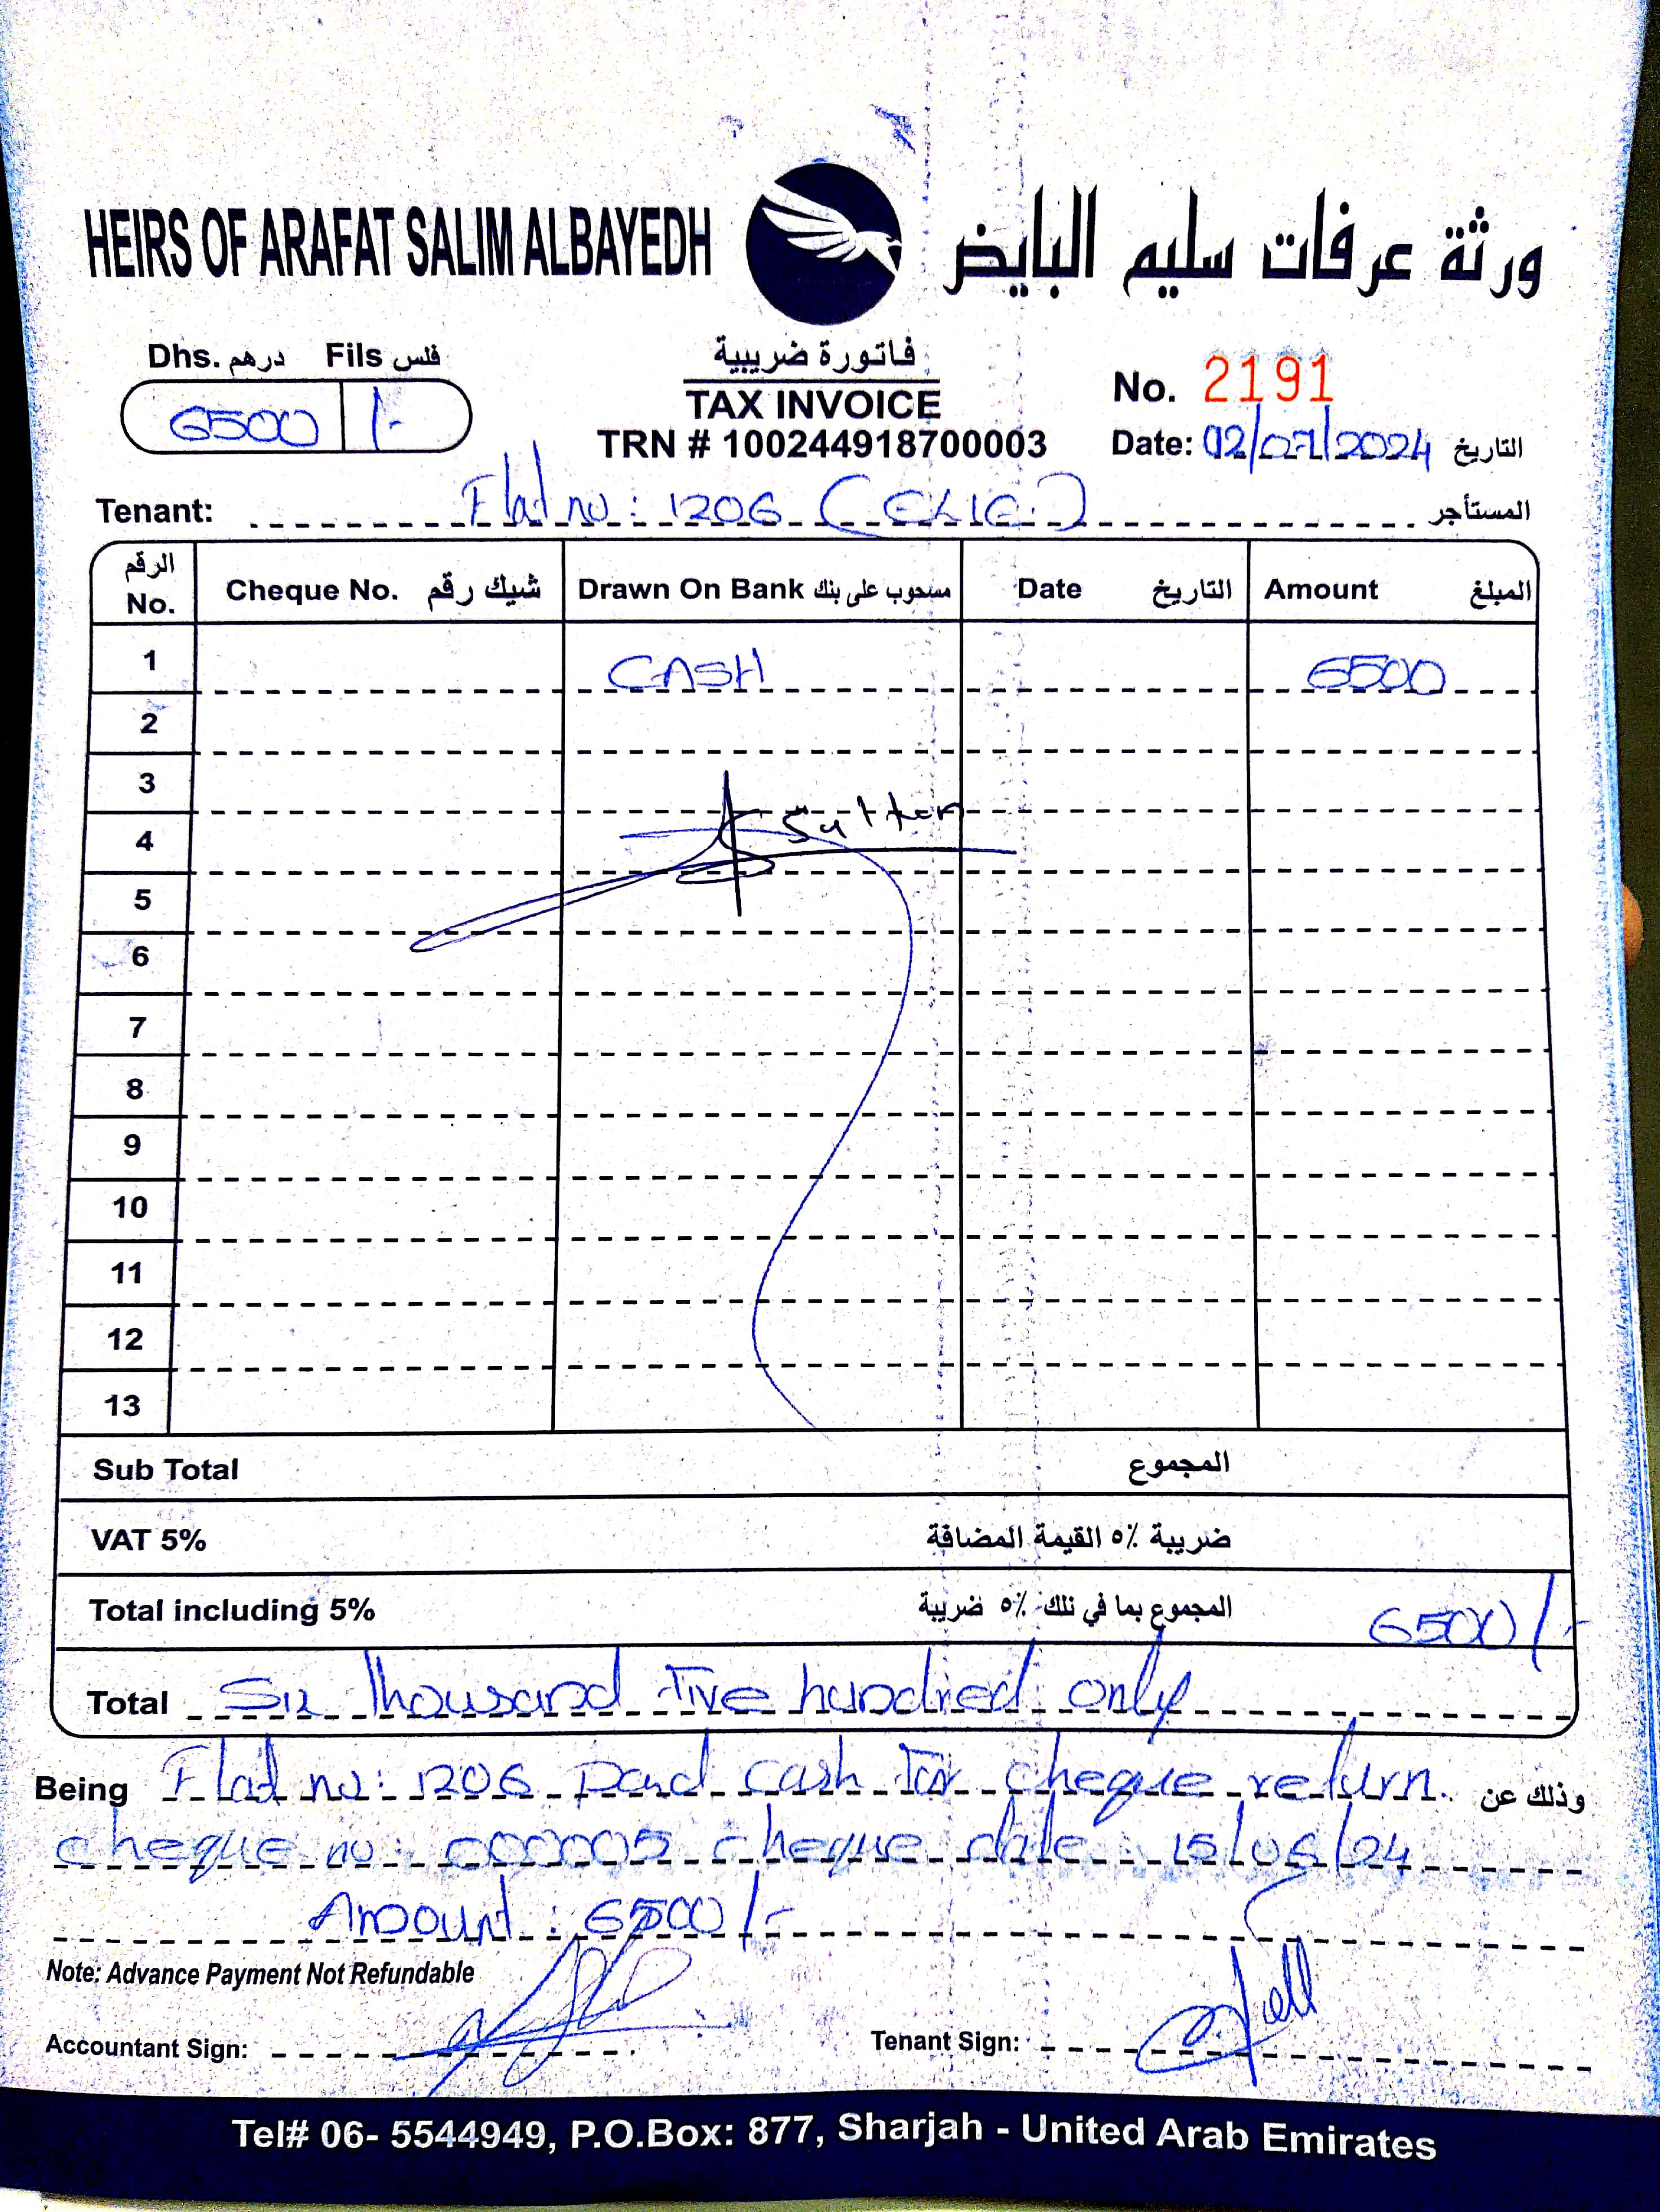 HEIRS OF ARAFAT SALIM ALBAYEDH ورثة عرفات سليم البايض
Dhs. درهم Fils فلس
6500 /-
فاتورة ضريبية
TAX INVOICE
TRN # 100244918700003
No. 2191
Date: 02/07/2024 التاريخ
Tenant: Flat no: 1206 (ELIE) المستأجر
الرقم No. Cheque No. شيك رقم Drawn On Bank مسحوب على بنك Date التاريخ Amount المبلغ
1 CASH 6500
2
3
4
5
6
7
8
9
10
11
12
13
Sub Total المجموع
VAT 5% ضريبة ٥٪ القيمة المضافة
Total including 5% المجموع بما في تلك ٥٪ ضريبة 6500/-
Total Six Thousand Five hundred only
Being Flat no: 1206 paid cash for cheque return. وذلك عن
cheque no: 000005 cheque date: 15/06/24
Amount: 6500/-
Note: Advance Payment Not Refundable
Accountant Sign: Tenant Sign:
Tel# 06- 5544949, P.O.Box: 877, Sharjah - United Arab Emirates